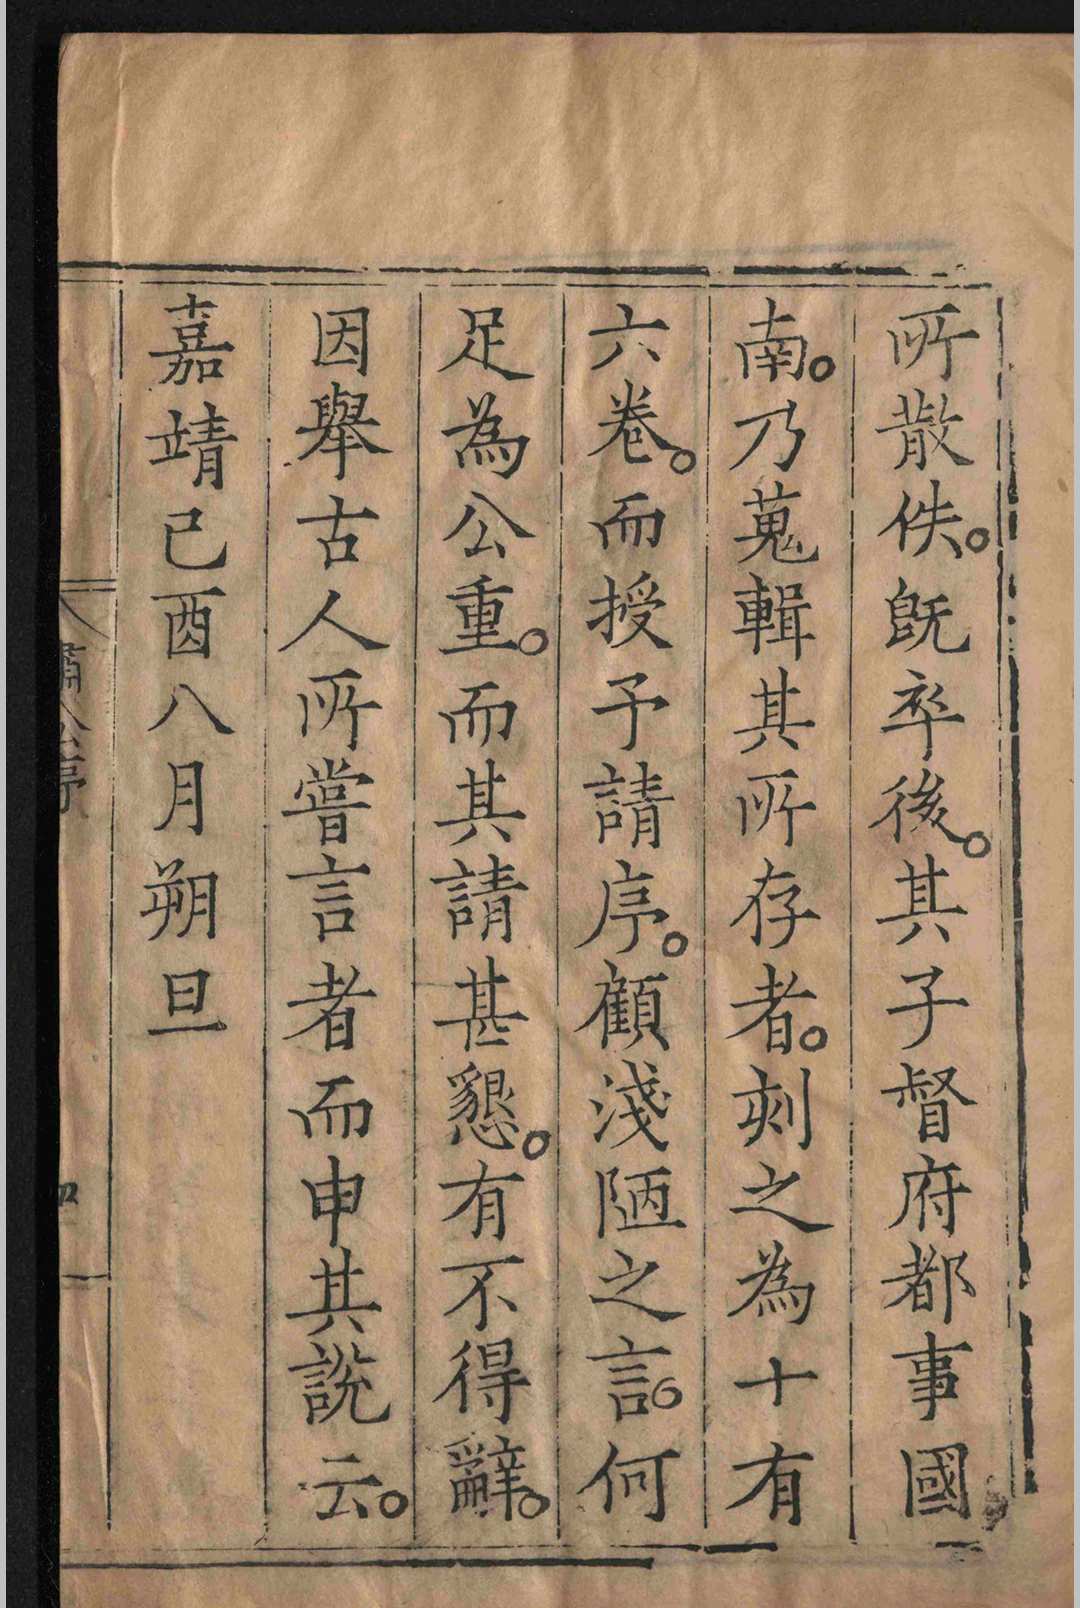 所散佚。既卒後。其子督府都事國
南。乃蒐輯其所存者。刻之為十有
六卷。而授予請序。顧淺陋之言。何
足為公重。而其請甚懇。有不得辭。
因舉古人所嘗言者而申其說云。
嘉靖己酉八月朔旦